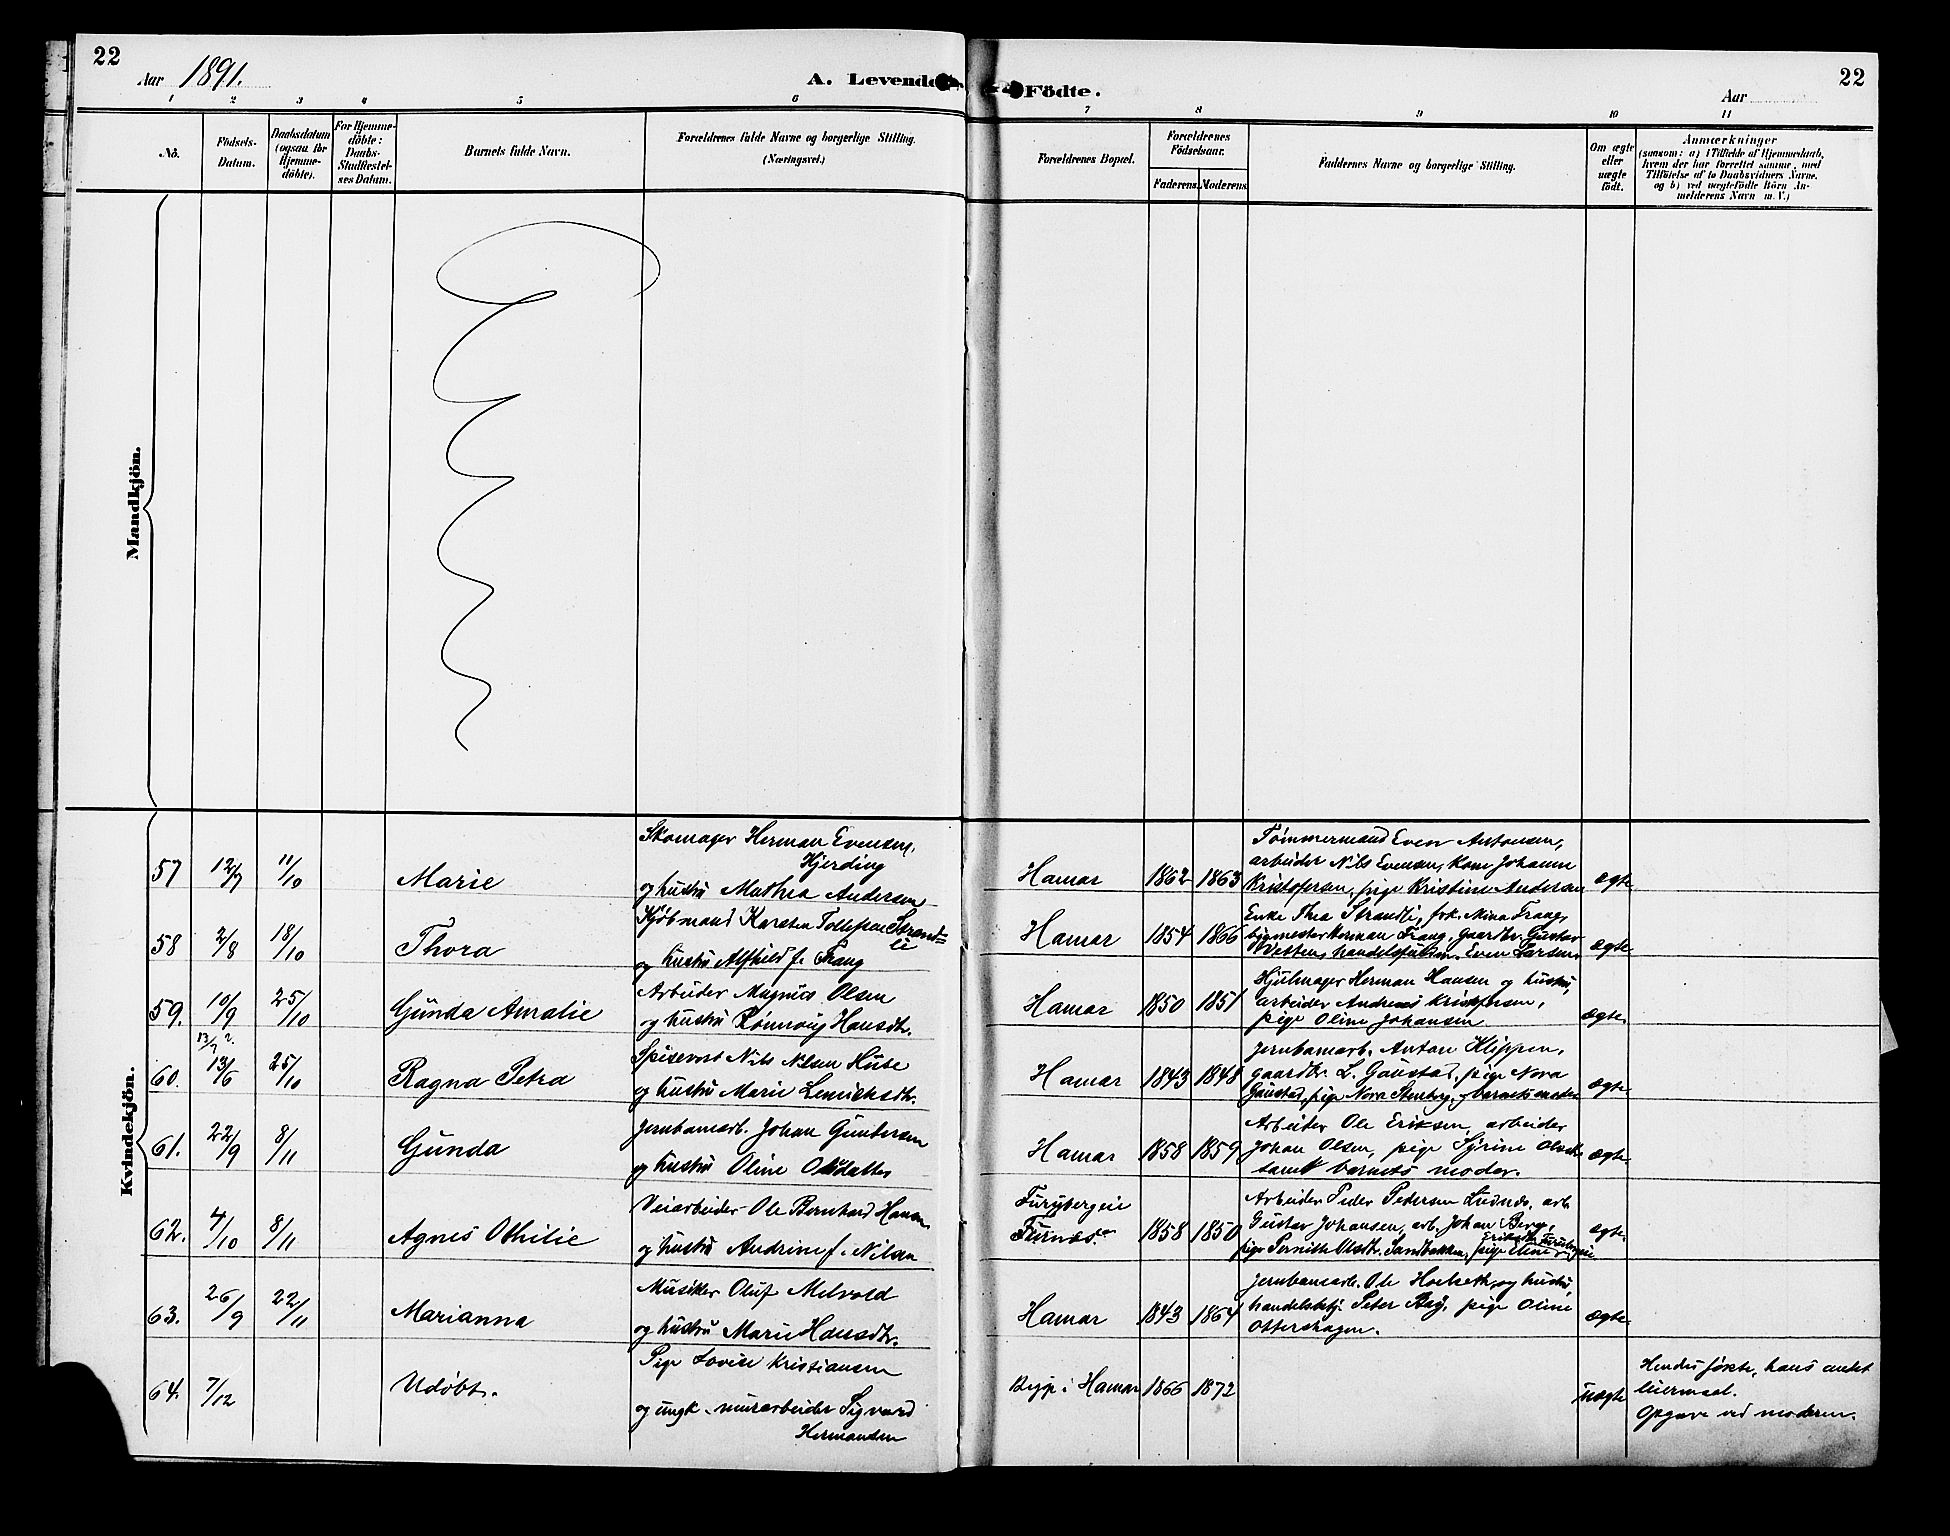 22
Aar 1891.
A. Levende
Födte.
Aar
22
1 2 3 4 5 6 7 8 9 10 11
No.
Födsels-
Datum.
Daabsdatum
(ogsaa for
Hjemme-
döbte).
For Hjemme-
döbte:
Daabs-
Stadfæstel-
ses Datum.
Barnets fulde Navn.
Forældrenes fulde Navne og borgerlige Stilling.
(Næringsvei.)
Forældrenes Bopæl.
Forældrenes
Födselsaar.
Faderens.
Moderens.
Faddernes Navne og borgerlige Stilling.
Om ægte
eller
uægte
födt.
Anmærkninger
(saasom: a) i Tilfælde af Hjemmedaab,
hvem der har forrettet samme, med
Tilföielse af to Daabsvidners Navne,
og b) ved uægtefödte Börn An-
melderens Navn m. V.)
Mandkjön.
Kvindekjön.
57 12/7 11/10 Marie
Skomager Herman Evensen
Hjerding
og hustru Mathea Andersen
Hamar 1862 1863
Tömmermand Even Antonsen,
arbeider Nils Evensen, kone Johanne
Kristofersen, pige Kristine Andersen
ægte
58 2/8 18/10 Thora
Kjöbmand Karsten Tollefsen Strand=
lie
og hustru Alfhild f. Frang
Hamar 1854 1866
Enke Thea Strandli, frk. Mina Frang,
Herman Frang, gaardbr. Gustav
Even Larsen
ægte
59. 10/9 25/10 Gunda Amalie
Arbeider Magnus Olsen
og hustru Rönnoug Hansdtr.
Hamar 1850 1851
Hjulmager Herman Hansen og hustru,
arbeider Andreas Kristofersen,
pige Oline Johansen
ægte.
13/7 ?
60. 13/6 25/10 Ragna Petra
Spisevert Nils Nilsen Huse
og hustru Marie
Hamar 1843 1848
Jernbanearb. Anton Klippen,
gaardbr. L. Gaustad, pige Nora
Gaustad, pige Nora Stenberg, barnets moder
ægte
61. 22/9 8/11 Gunda
Jernbanearb. Johan Gundersen
og hustru Oline Olsdatter
Hamar 1858 1859
Arbeider Ole Eriksen, arbeider
Johan Olsen, pige
samt barnets moder.
ægte.
62. 4/10 8/11 Agnes Othilie
Veiarbeider Ole Bernhard Hansen
og hustru Andrine f. Nilsen
Furubergeie
Furnes. 1858 1850
Arbeider Peder Pedersen Lundnæs, arb.
Gustav Johansen, arb. Johan Berge,
pige Pernille Olsdtr. Sandbakken, pige Eline
ægte.
63. 26/9 22/11 Marianna
Musiker Oluf Melvold
og hustru Marie Hansdtr.
Hamar 1843 1864
Jernbanearb. Ole og hustru,
handelsbetj. Peter pige Oline
Ottershagen.
ægte.
64. 7/12 Udöbt.
Pige Lovise Kristiansen
og ungk. murarbeider Sigvard
Hermansen
Begge i Hamar 1866 1872
uægte
Hendes förste, hans andet
leiermaal.
Opgave ved moderen.